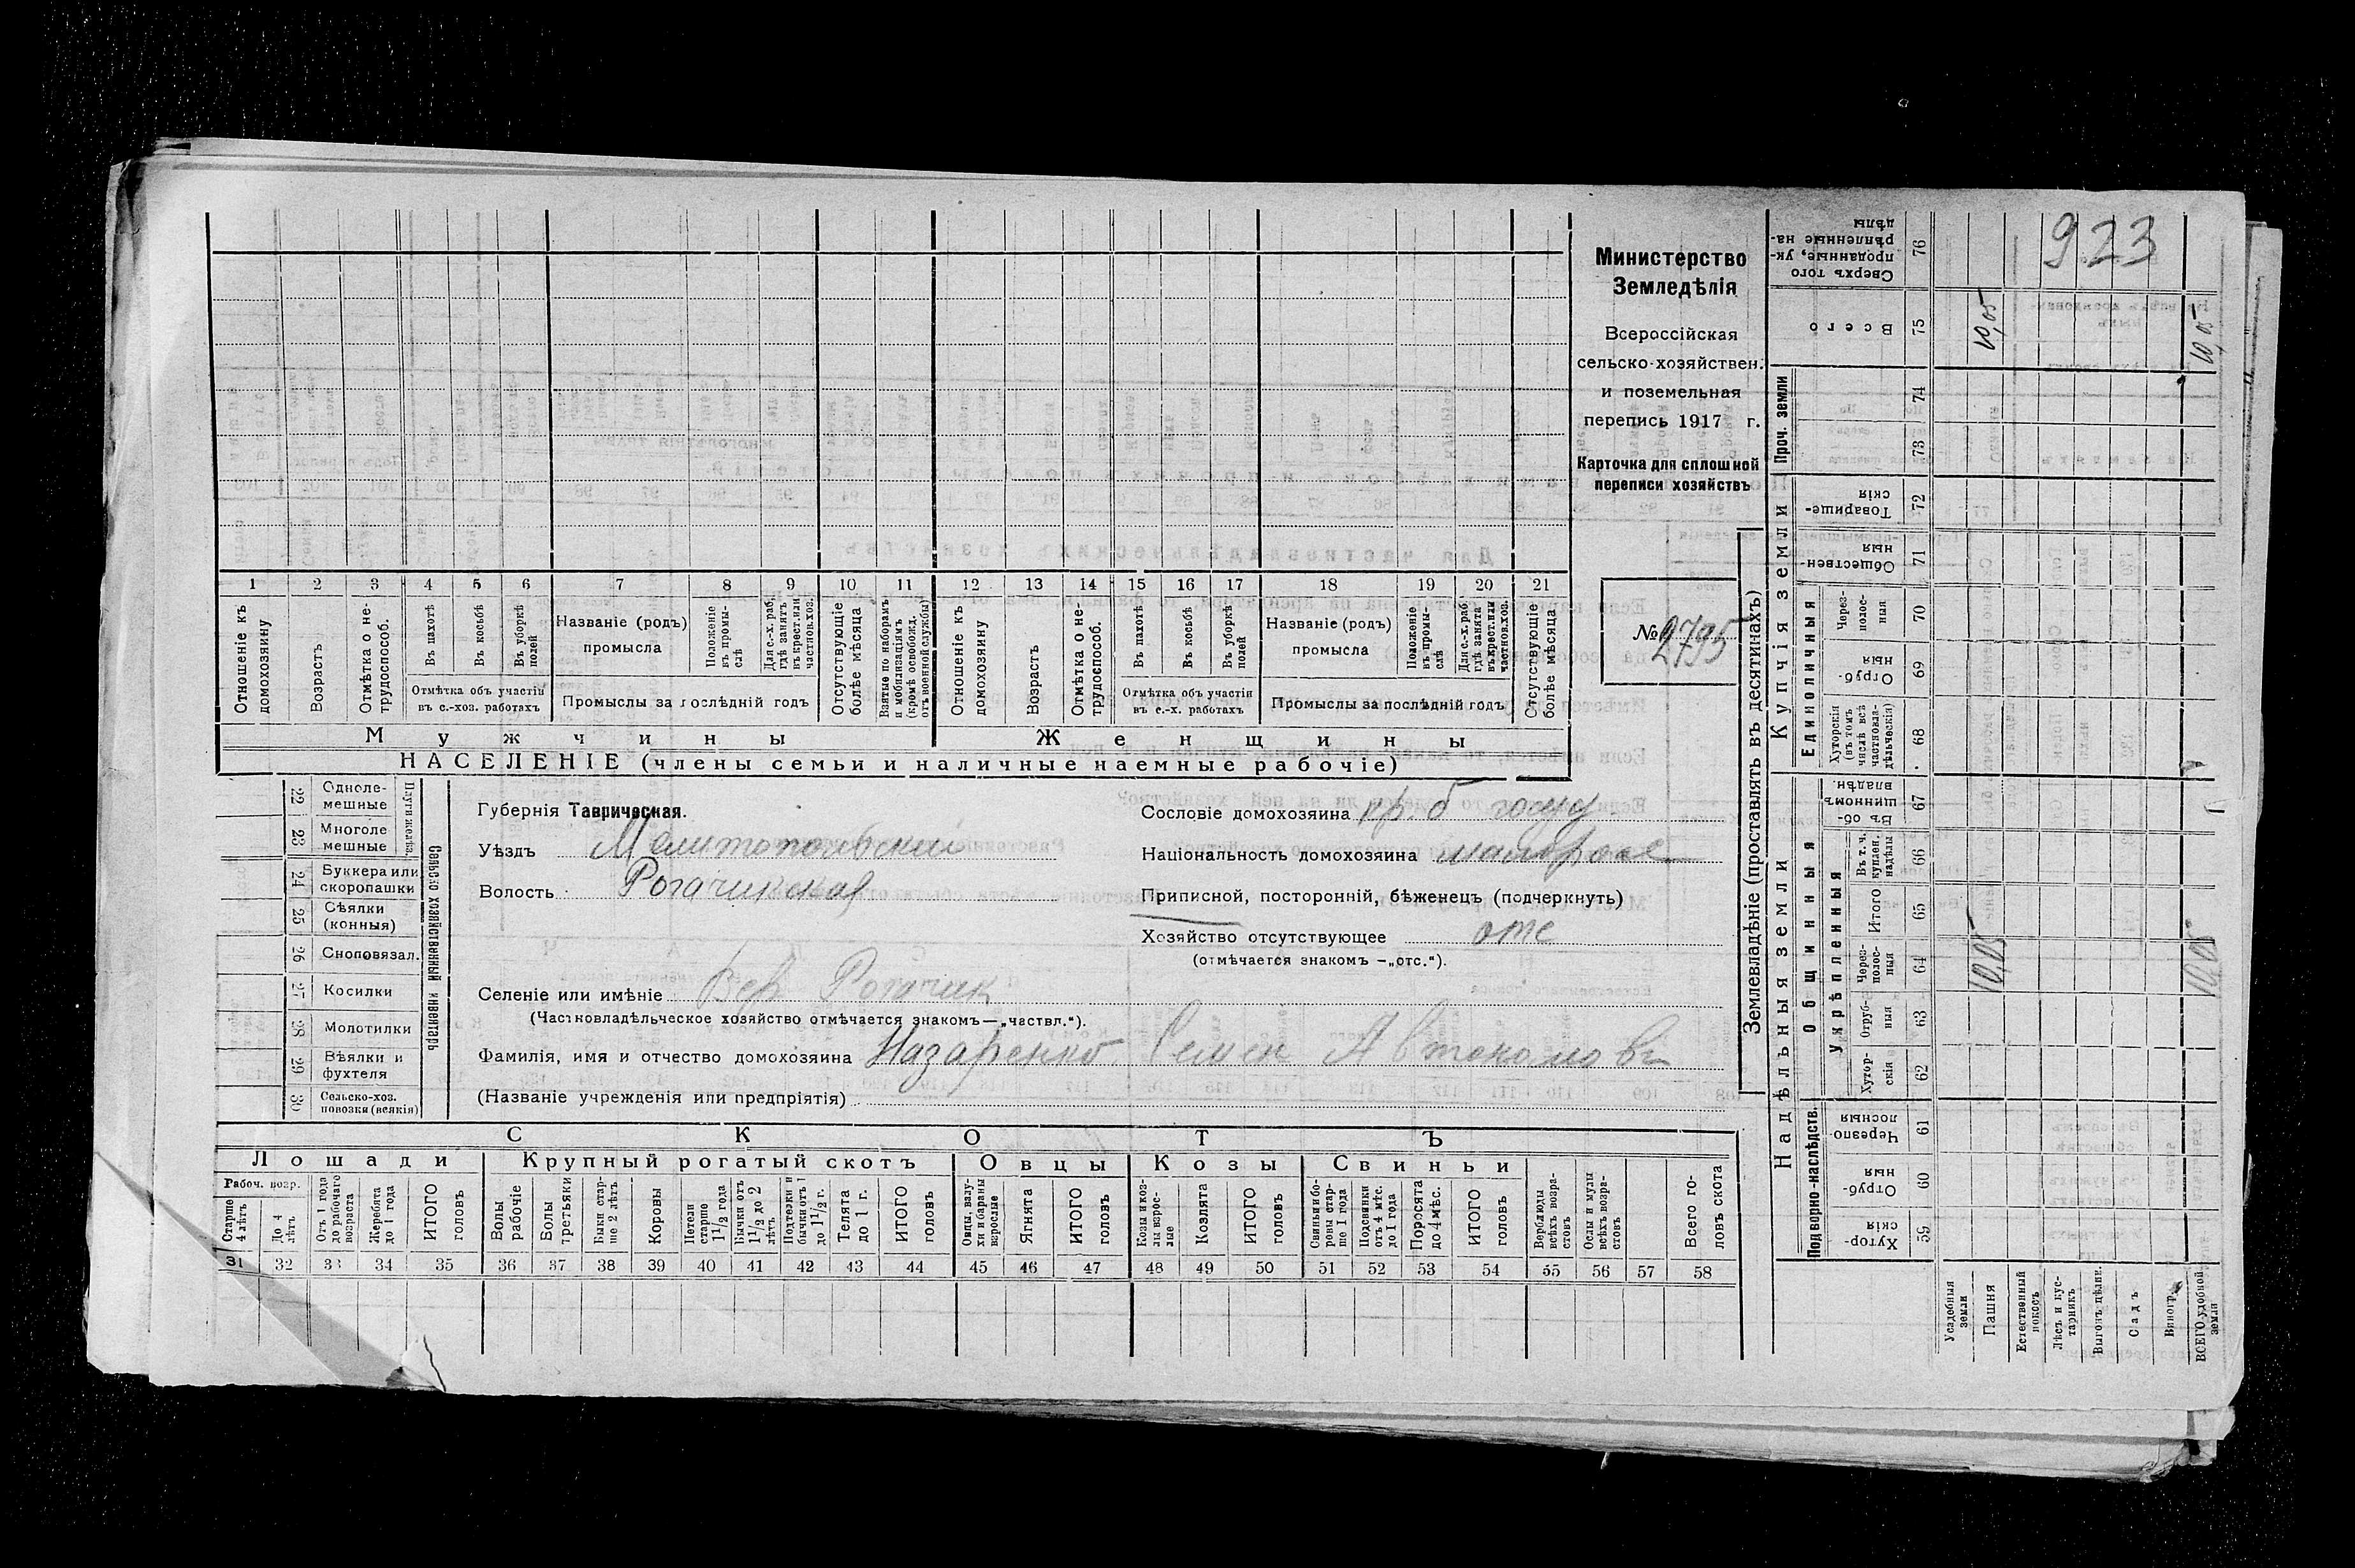 923
Министерство
Земледѣлія
Всероссійская
сельско-хозяйствен.
и поземельная
перепись 1917 г.
Карточка для сплошной
переписи хозяйствъ
№ 2795
1 2 3 4 5 6 7 8 9 10 11 12 13 14 15 16 17 18 19 20 21
Отношеніе къ домохозяину
Возрастъ
Отмѣтка о нетрудоспособ.
Въ пахотѣ
Въ косьбѣ
Въ уборкѣ полей
Отмѣтка объ участіи
въ с.-хоз. работахъ
Названіе (родъ)
промысла
Положеніе въ промыслѣ
Для с.-х. раб. гдѣ занятъ въ крест. или частнов. хоз.
Промыслы за послѣдній годъ
Отсутствующіе болѣе мѣсяца
Взятые по наборамъ и мобилизаціямъ (кромѣ освобожд. отъ военной службы)
Отношеніе къ домохозяину
Возрастъ
Отмѣтка о нетрудоспособ.
Въ пахотѣ
Въ косьбѣ
Въ уборкѣ полей
Отмѣтка объ участіи
въ с.-х. работахъ
Названіе (родъ)
промысла
Положеніе въ промыслѣ
Для с.-х. раб. гдѣ занята въ крест. или частнов. хоз.
Промыслы за послѣдній годъ
Отсутствующіе болѣе мѣсяца
Мужчины
Женщины
НАСЕЛЕНІЕ (члены семьи и наличные наемные рабочіе)
Сельско хозяйственный инвентарь
Плуги желѣз.
22 Одноле-
мешные
23 Многоле
мешные
24 Буккера или
скоропашки
25 Сѣялки
(конныя)
26 Сноповязал.
27 Косилки
28 Молотилки
29 Вѣялки и
фухтеля
30 Сельско-хоз.
повозки (всякія)
Губернія Таврическая.
Уѣздъ Мелитопольский
Волость Рогачикская
Сословіе домохозяина кр. б
Національность домохозяина
Приписной, посторонній, бѣженецъ (подчеркнуть)
Хозяйство отсутствующее отс
(отмѣчается знакомъ —„отс.“).
Селеніе или имѣніе Вер Рогачик
(Частновладѣльческое хозяйство отмѣчается знакомъ—„частвл.“).
Фамилія, имя и отчество домохозяина Назаренко Семен Автономовъ
(Названіе учрежденія или предпріятія)
СКОТЪ
Лошади
Крупный рогатый скотъ
Овцы
Козы
Свиньи
Рабоч. возр.
Старше 4 лѣтъ
До 4 лѣтъ
Отъ 1 года до рабочаго возраста
Жеребята до 1 года
ИТОГО головъ
Волы рабочіе
Волы третьяки
Быки старше 2 лѣтъ
Коровы
Нетели старше 1 1/2 года
Бычки отъ 1 1/2 до 2 лѣтъ
Подтелки и бычки отъ 1 до 1 1/2 г.
Телята до 1 г.
ИТОГО головъ
Овцы, валухи и бараны взрослые
Ягнята
ИТОГО головъ
Козы и козлы взрослые
Козлята
ИТОГО головъ
Свиньи и боровы старше 1 года
Подсвинки отъ 4 мѣс. до 1 года
Поросята до 4 мѣс.
ИТОГО головъ
Верблюды всѣхъ возрастовъ
Ослы и мулы всѣхъ возрастовъ
Всего головъ скота
31 32 33 34 35 36 37 38 39 40 41 42 43 44 45 46 47 48 49 50 51 52 53 54 55 56 57 58
Землевладѣніе (проставлять въ десятинахъ)
Надѣльныя земли
Купчія земли
Проч. земли
Подворно-наслѣдств.
Общинныя
Укрѣпленныя
Единоличныя
Хуторскія 59
Отрубныя 60
Черезполосныя 61
Хуторскія 62
Отрубныя 63
Черезполосныя 64
Итого 65
Въ т. ч. куплен. надѣлы 66
Въ общинномъ владѣн. 67
Хуторскія (въ томъ числѣ всѣ частновладѣльческія) 68
Отрубныя 69
Черезполосныя 70
Общественныя 71
Товарищескія 72
73
74
Всего 75
Сверхъ того проданные, укрѣпленные надѣлы 76
Усадебныя земли
Пашня 10,05 10,05
Естественный покосъ
Лѣсъ и кустарникъ
Выгонъ, цѣлин.
Садъ
Виногр.
ВСЕГО удобной земли 10,05 10,05